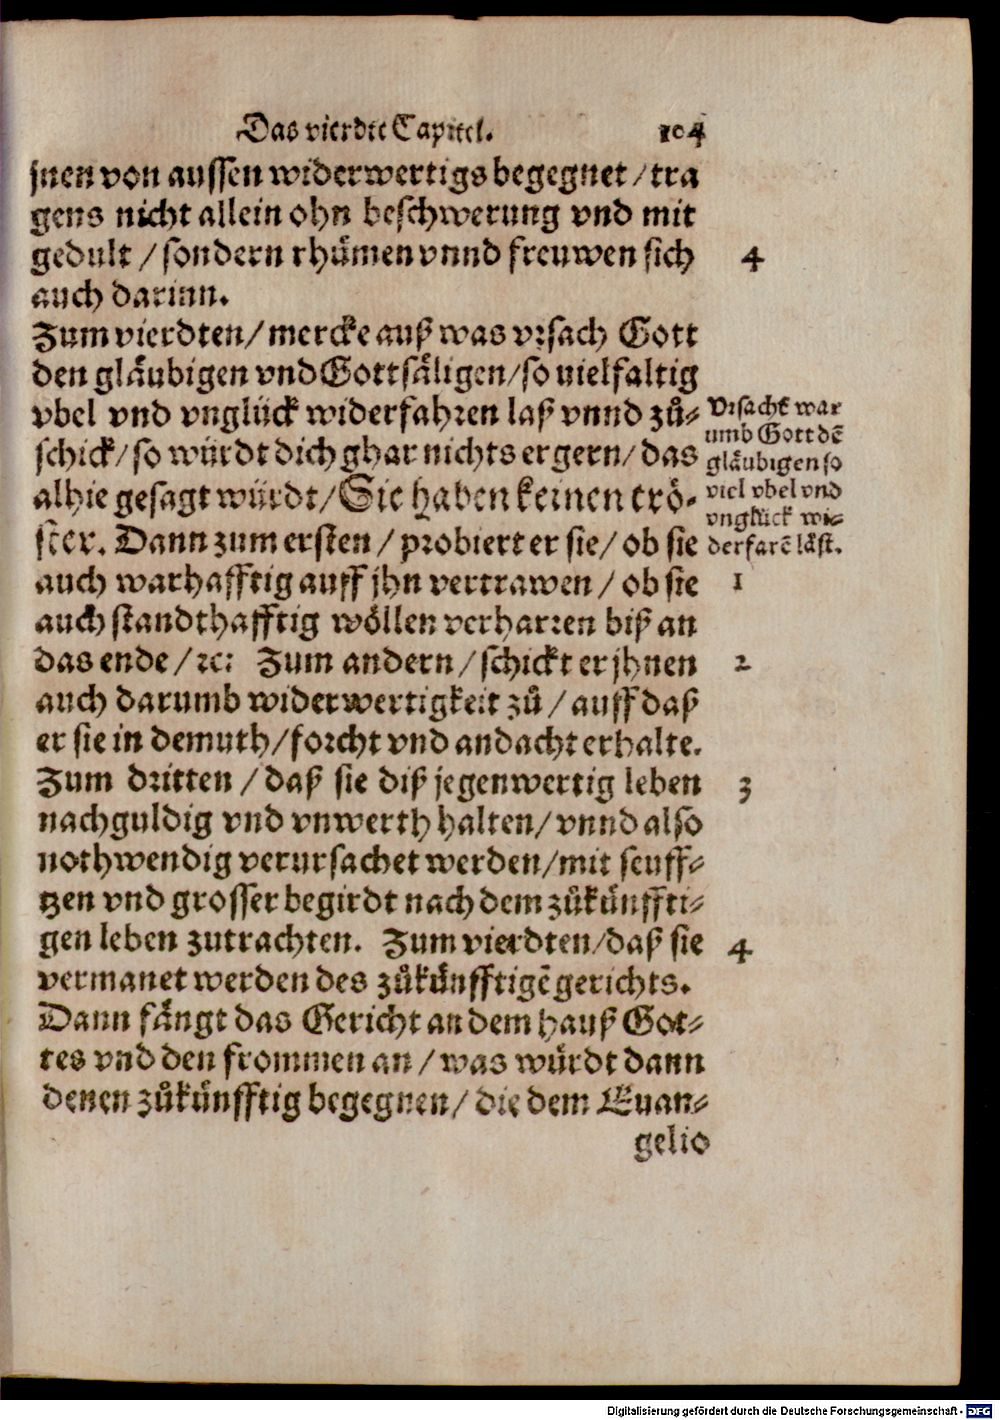 Das vierdte Capittel. 104
jnen von aussen widerwertigs begegnet/tra
gens nicht allein ohn beschwerung vnd mit
gedult/sondern rhuͤmen vnnd freuwen sich
4
auch darinn.
Zum vierdten/mercke auß was vrsach Gott
den glaͤubigen vnd Gottsaͤligen/so vielfaltig
vbel vnd vnglück widerfahren laß vnnd zuͦ⸗
schick/so würdt dich ghar nichts ergern/das
alhie gesagt würdt/Sie haben keinen troͤ⸗
ster. Dann zum ersten/probiert er sie/ob sie
Vrsache war
umb Gott dē
glaͤubigen so
viel vbel vnd
vnglück wi⸗
derfarē laͤst.
auch warhafftig auff jhn vertrawen/ob sie
1
auch standthafftig woͤllen verharren biß an
das ende/ꝛc: Zum andern/schickt er jhnen
2
auch darumb widerwertigkeit zuͦ/auff daß
er sie in demuth/forcht vnd andacht erhalte.
Zum dritten/daß sie diß jegenwertig leben
3
nachguldig vnd vnwerth halten/vnnd also
nothwendig verursachet werden/mit seuff⸗
tzen vnd grosser begirdt nach dem zuͦkünffti⸗
gen leben zutrachten. Zum vierdten/daß sie
4
vermanet werden des zuͦkünfftigē gerichts.
Dann faͤngt das Gericht an dem hauß Got⸗
tes vnd den frommen an/was würdt dann
denen zuͦkünfftig begegnen/die dem Euan⸗
gelio
Digitalisierung gefördert durch die Deutsche Forschungsgemeinschaft - DFG